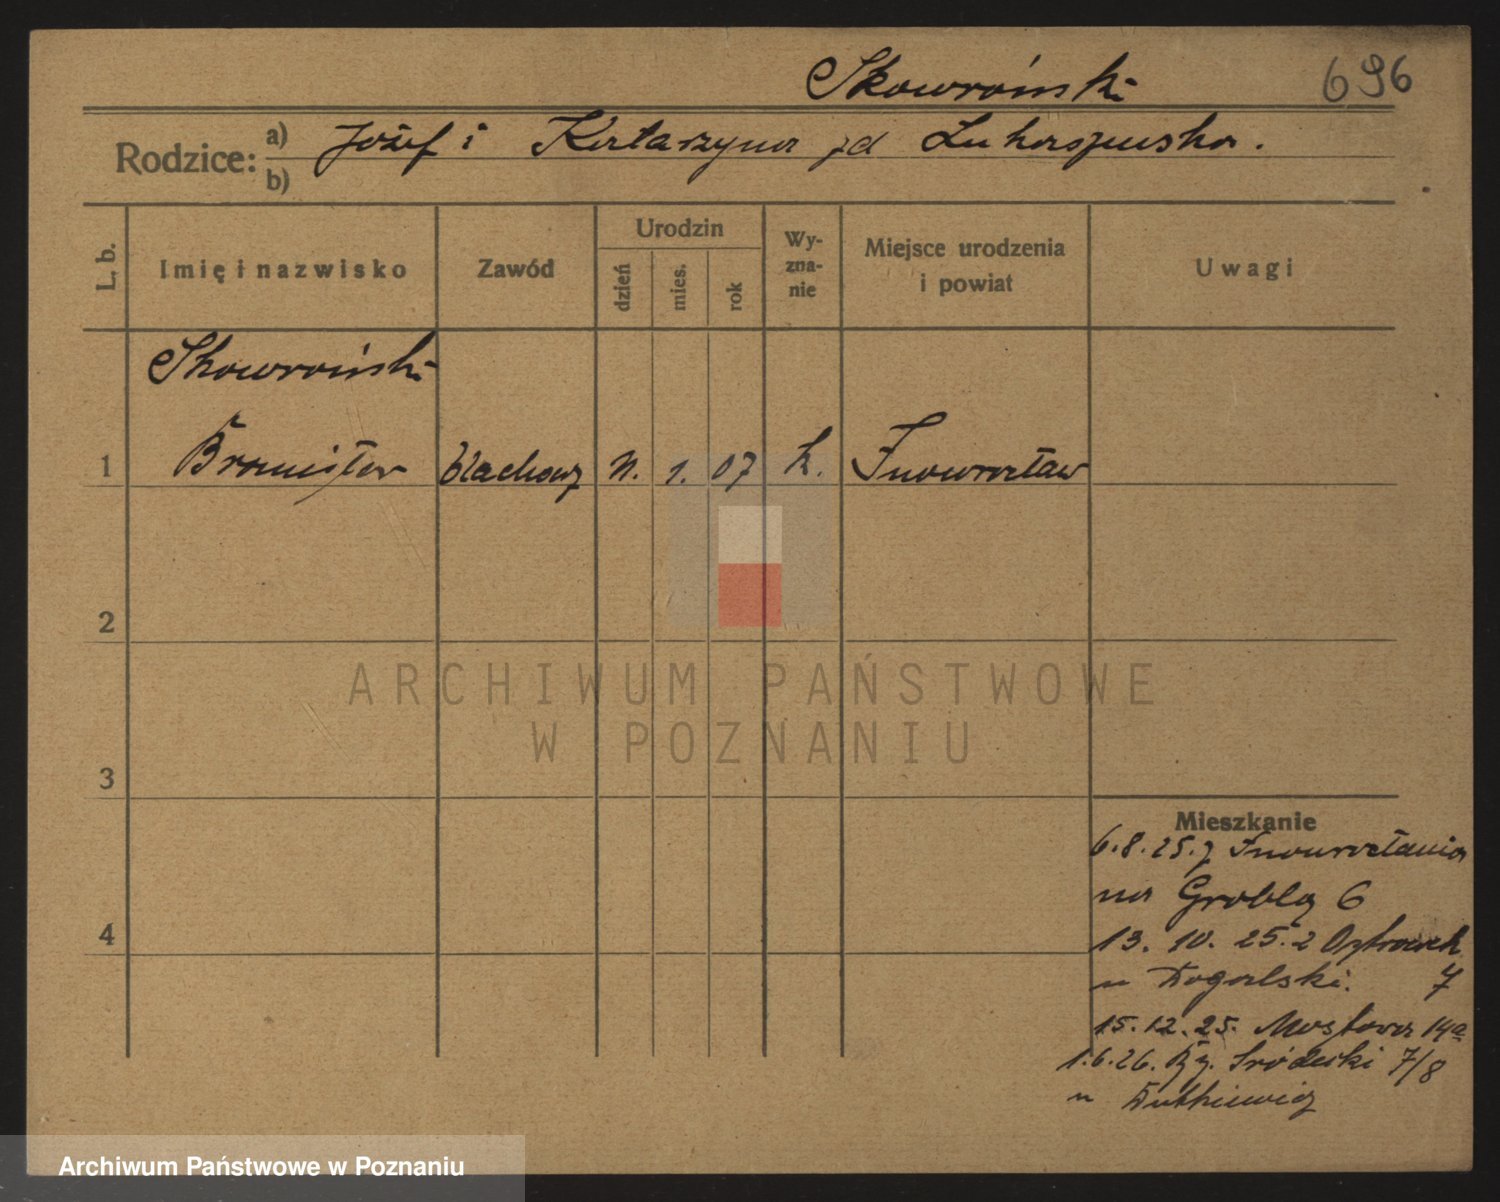 Skowroński
696
Rodzice: a) Józef i Katarzyna zd Łukaszewska.
b)
L. b.
Imię i nazwisko
Zawód
Urodzin
dzień
mies.
rok
Wy-
zna-
nie
Miejsce urodzenia
i powiat
Uwagi
Skowroński
1 Bronisław blacharz 11. 1. 07 k. Inowrocław
2
ARCHIWUM PAŃSTWOWE
W POZNANIU
3
Mieszkanie
6.8.25. z Inowrocławia
na Groblą 6
4
13. 10. 25. Ostrówek
u Rogalski. 7
15.12.25. Mostowa 14a
1.6.26. Ry. Śródecki 7/8
u Dutkiewicz
Archiwum Państwowe w Poznaniu